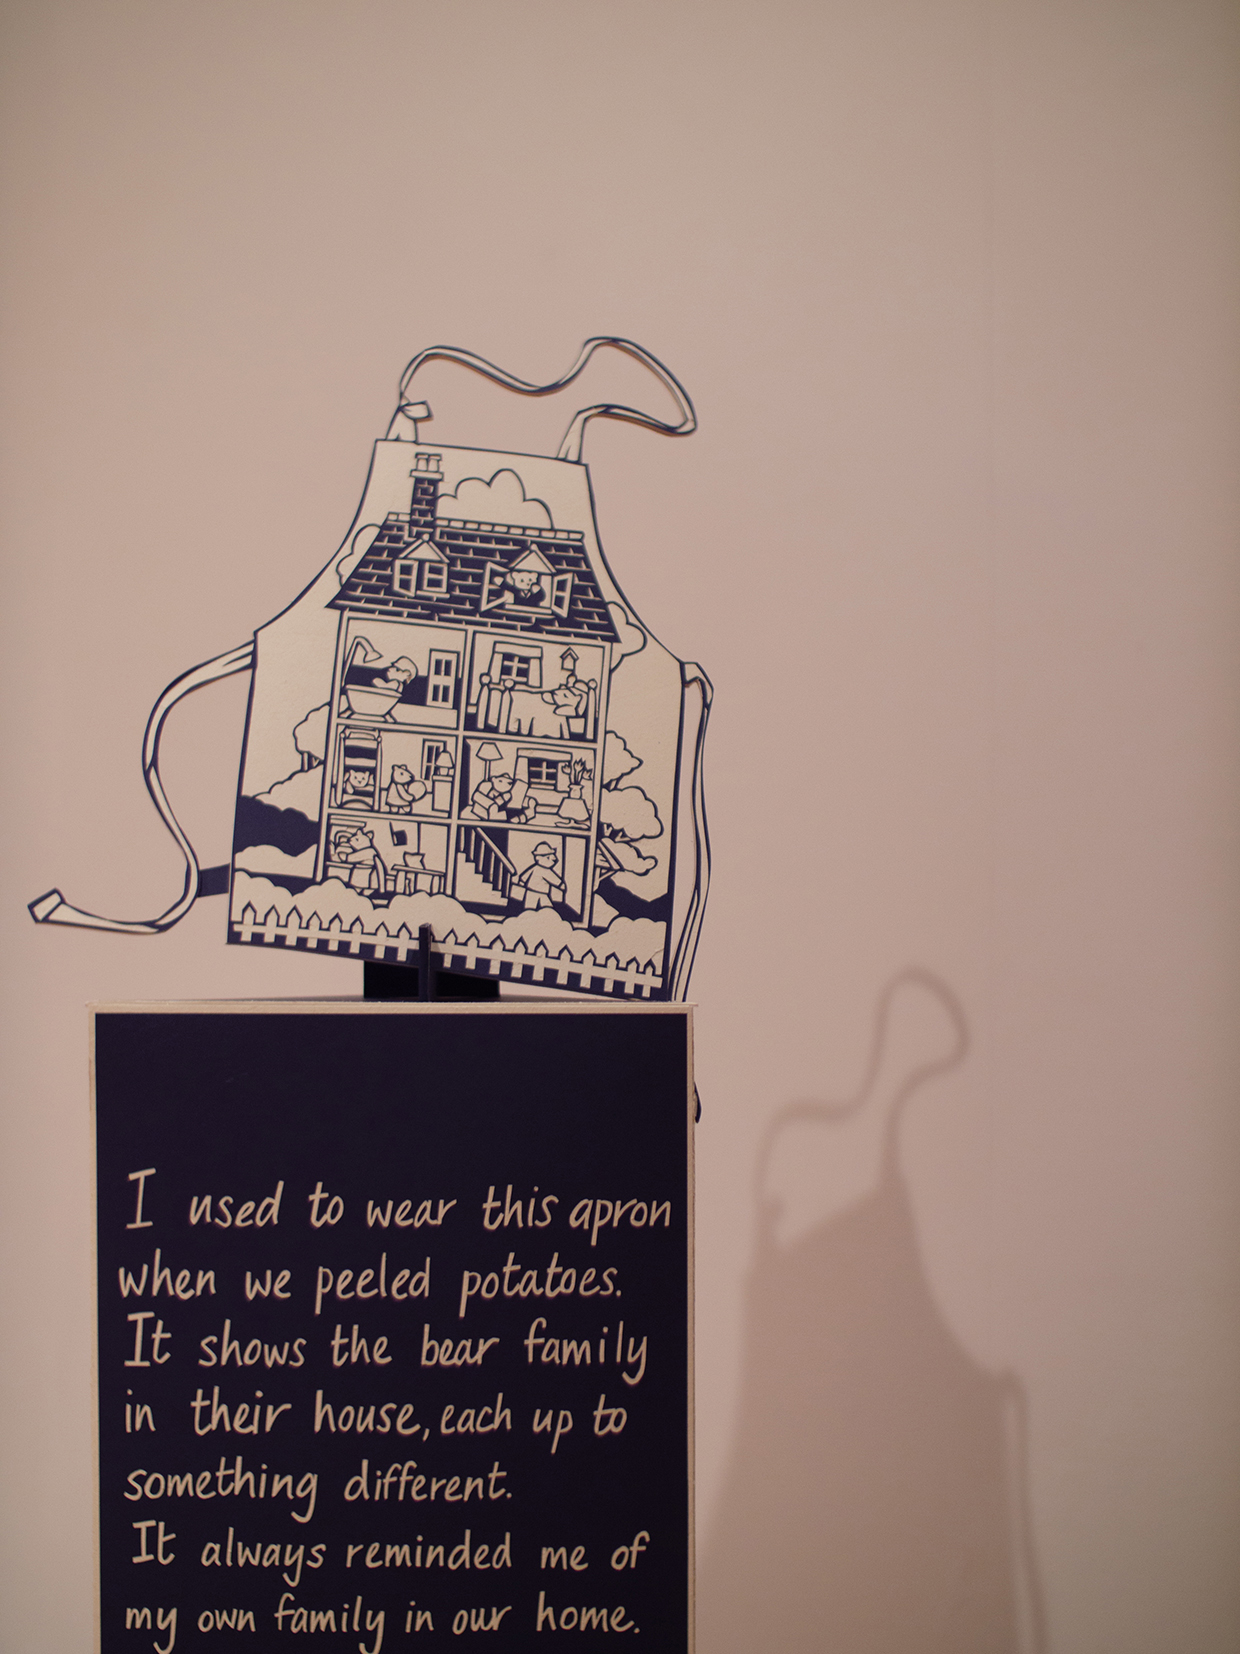 I used to wear this apron
when we peeled potatoes.
It shows the bear family
in their house, each up to
something different.
It always reminded me of
my own family in our home.